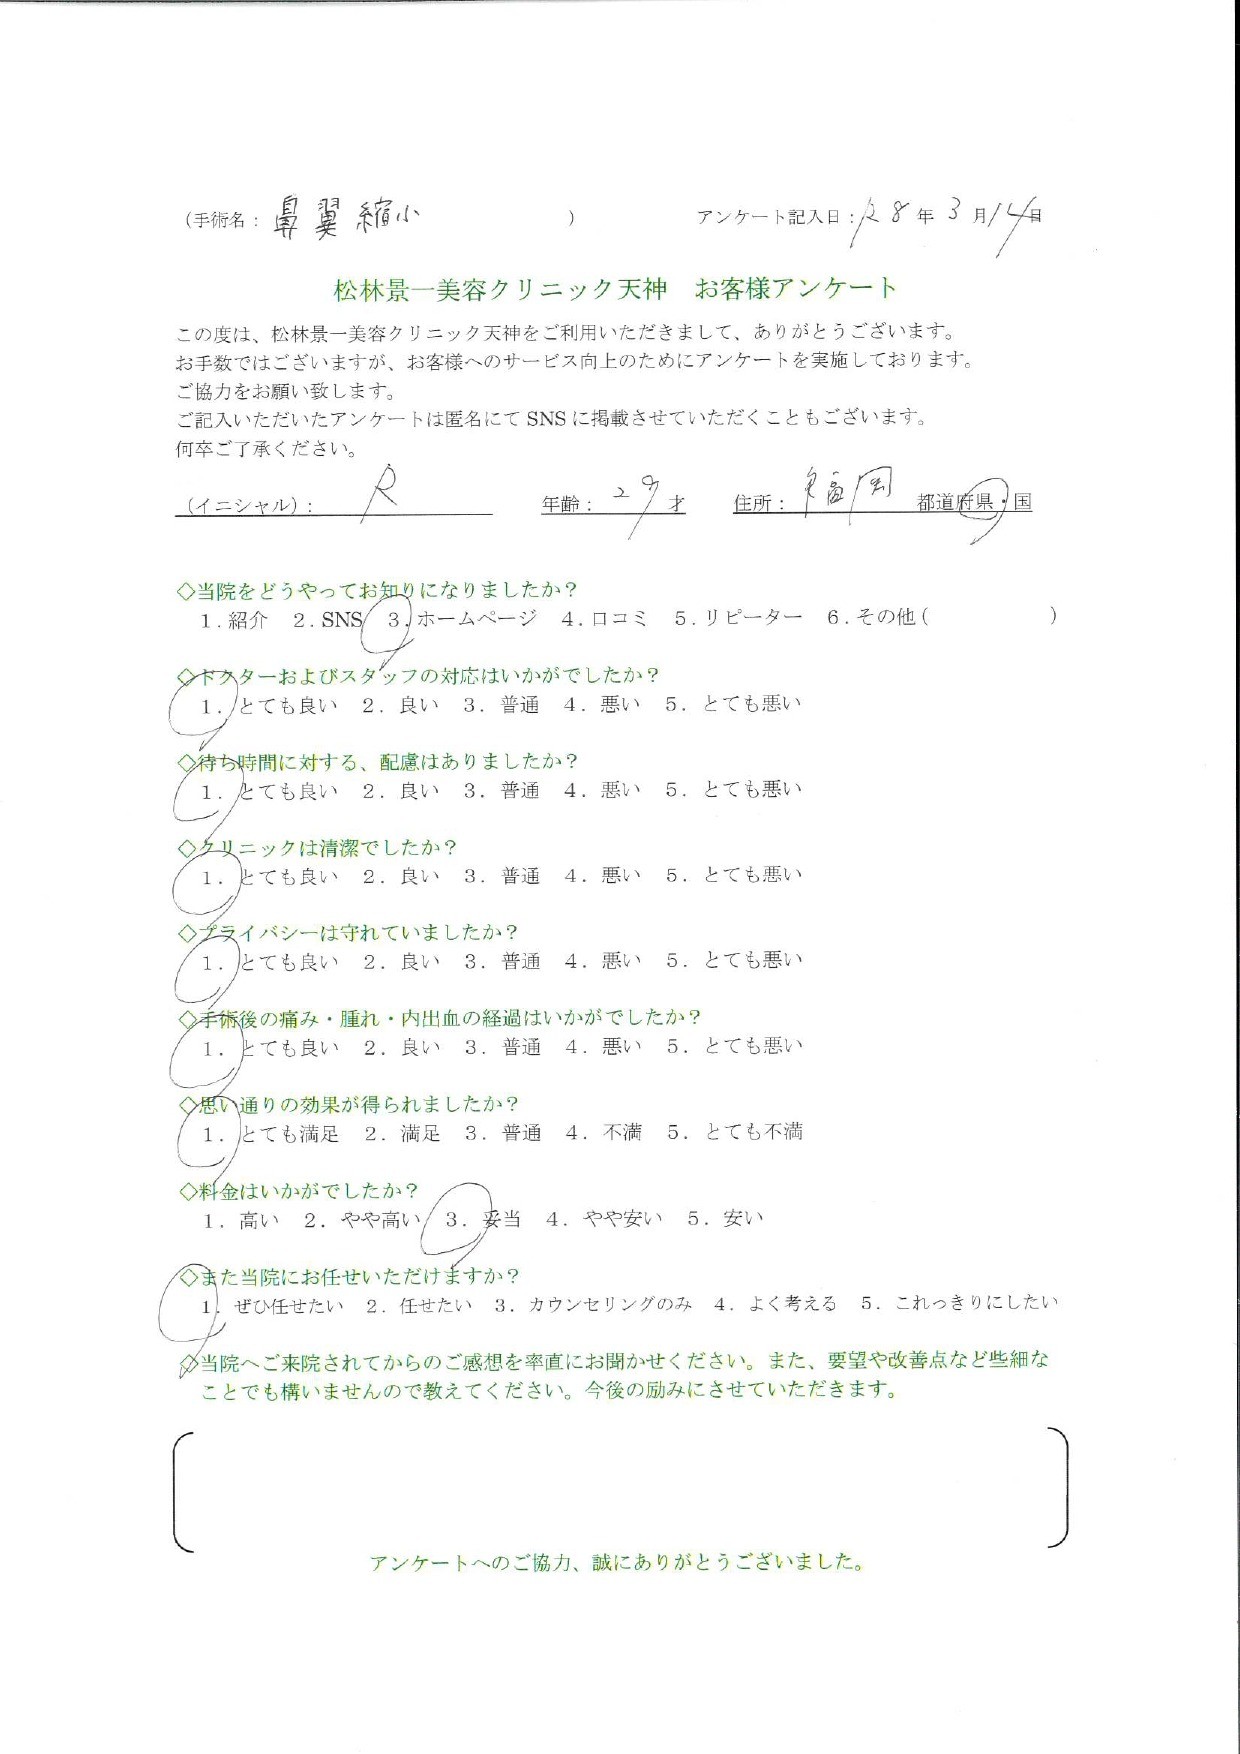 （手術名：鼻翼縮小　）　アンケート記入日：R8年3月14日
松林景一美容クリニック天神　お客様アンケート
この度は、松林景一美容クリニック天神をご利用いただきまして、ありがとうございます。
お手数ではございますが、お客様へのサービス向上のためにアンケートを実施しております。
ご協力をお願い致します。
ご記入いただいたアンケートは匿名にて SNS に掲載させていただくこともございます。
何卒ご了承ください。
（イニシャル）：R　年齢：29才　住所：福岡　都道府県・国
◇当院をどうやってお知りになりましたか？
1.紹介　2.SNS　3.ホームページ　4.口コミ　5.リピーター　6.その他（　）
◇ドクターおよびスタッフの対応はいかがでしたか？
1. とても良い　2. 良い　3. 普通　4. 悪い　5. とても悪い
◇待ち時間に対する、配慮はありましたか？
1. とても良い　2. 良い　3. 普通　4. 悪い　5. とても悪い
◇クリニックは清潔でしたか？
1. とても良い　2. 良い　3. 普通　4. 悪い　5. とても悪い
◇プライバシーは守れていましたか？
1. とても良い　2. 良い　3. 普通　4. 悪い　5. とても悪い
◇手術後の痛み・腫れ・内出血の経過はいかがでしたか？
1. とても良い　2. 良い　3. 普通　4. 悪い　5. とても悪い
◇思い通りの効果が得られましたか？
1. とても満足　2. 満足　3. 普通　4. 不満　5. とても不満
◇料金はいかがでしたか？
1. 高い　2. やや高い　3. 妥当　4. やや安い　5. 安い
◇また当院にお任せいただけますか？
1. ぜひ任せたい　2. 任せたい　3. カウンセリングのみ　4. よく考える　5. これっきりにしたい
◇当院へご来院されてからのご感想を率直にお聞かせください。また、要望や改善点など些細な
ことでも構いませんので教えてください。今後の励みにさせていただきます。
アンケートへのご協力、誠にありがとうございました。